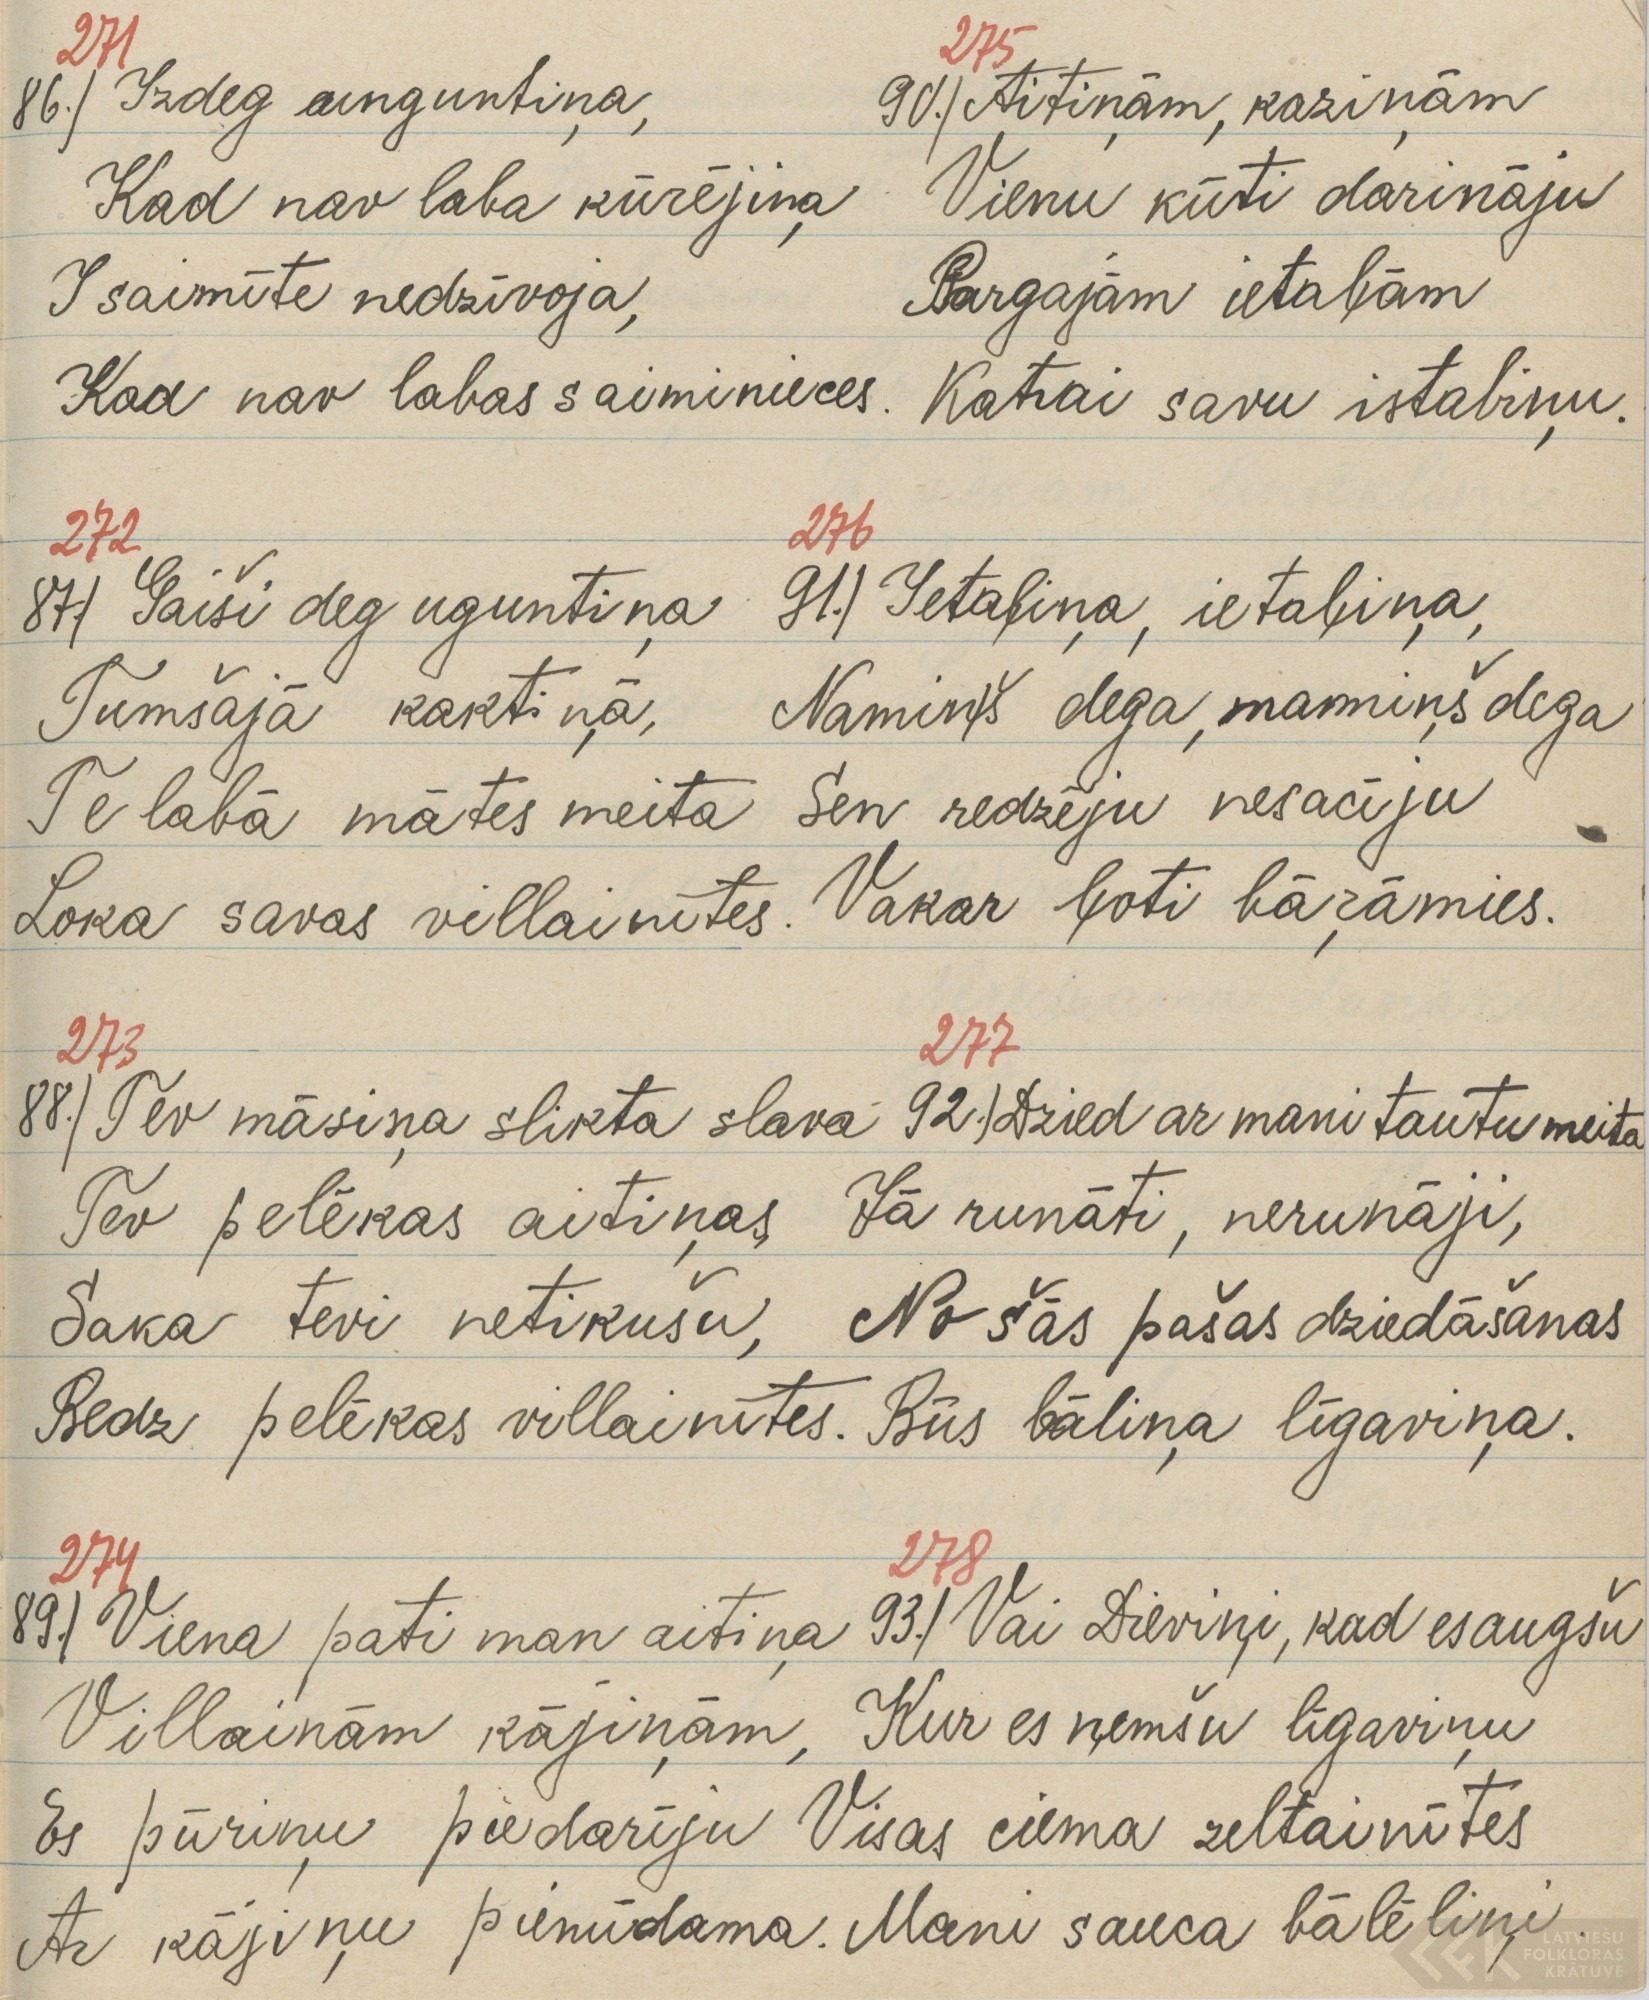 271
86.) Izdeg unguntiņa,
Kad nav laba kūrējiņa
I saimīte nedzīvoja,
Kad nav labas saiminieces.
272
87.) Gaiši deg uguntiņa
Tumšajā kaktiņā,
Te labā mātes meita
Loka savas villainītes.
273
88.) Tev māsiņa slikta slava
Tev pelēkas aitiņas,
Saka tevi netikušu,
Redz pelēkas villainītes.
274
89.) Viena pati man aitiņa
Villainām kājiņām,
Es pūriņu piedarīju
Ar kājiņu pienūdama.
275
90.) Aitiņām, kaziņām
Vienu kūti darināju
Bargajām ietaļām
Katrai savu istabiņu.
276
91.) Ietaļiņa, ietaļiņa,
Namiņš dega, mamiņš dega
Sen redzēju nesacīju
Vakar ļoti bāŗāmies.
277
92.) Dzied ar mani tautu meita
Jā runāti, nerunāji,
No šās pašas dziedāšanas
Būs bāliņa līgaviņa.
278
93.) Vai Dieviņi, kad es augšu
Kur es ņemšu līgaviņu
Visas ciema zeltainītes
Mani sauca bālēliņi.
LATVIEŠU
FOLKLORAS
KRĀTUVE